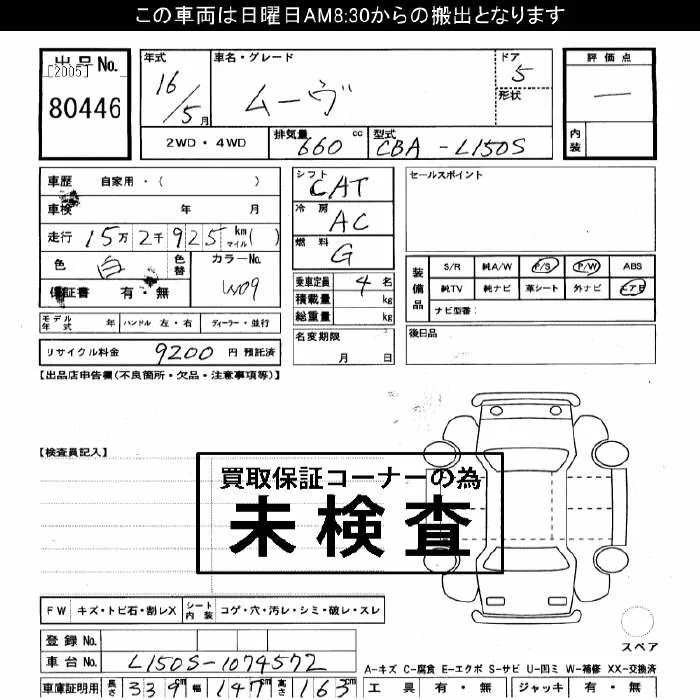 この車両は日曜日AM8:30からの搬出となります
出品No.
[2005]
80446
年式
16/5月
車名・グレード
ムーヴ
ドア
5
形状
評価点
一
内装
2WD・4WD
排気量
660cc
型式
CBA-L150S
車歴 自家用・( )
車検 年 月
走行 15万2千925km マイル( )
色 白 色替 カラーNo. W09
保証書 有・無
モデル年式 年 ハンドル 左・右 ディーラー・並行
リサイクル料金 9200円 預託済
シフト CAT
冷房 AC
燃料 G
乗車定員 4名
積載量 kg
総重量 kg
名変期限
月 日
セールスポイント
装備品
S/R 純A/W P/S P/W ABS
純TV 純ナビ 革シート 外ナビ エアB
ナビ型番:
後日品
【出品店申告欄(不良箇所・欠品・注意事項等)】
【検査員記入】
買取保証コーナーの為
未検査
FW キズ・トビ石・割レX シート内装 コゲ・穴・汚レ・シミ・破レ・スレ
スペア
登録No.
車台No. L150S-1074572
A-キズ C-腐食 E-エクボ S-サビ U-凹ミ W-補修 XX-交換済
車庫証明用 長さ 339cm 幅 147cm 高さ 163cm
工具 有・無 ジャッキ 有・無